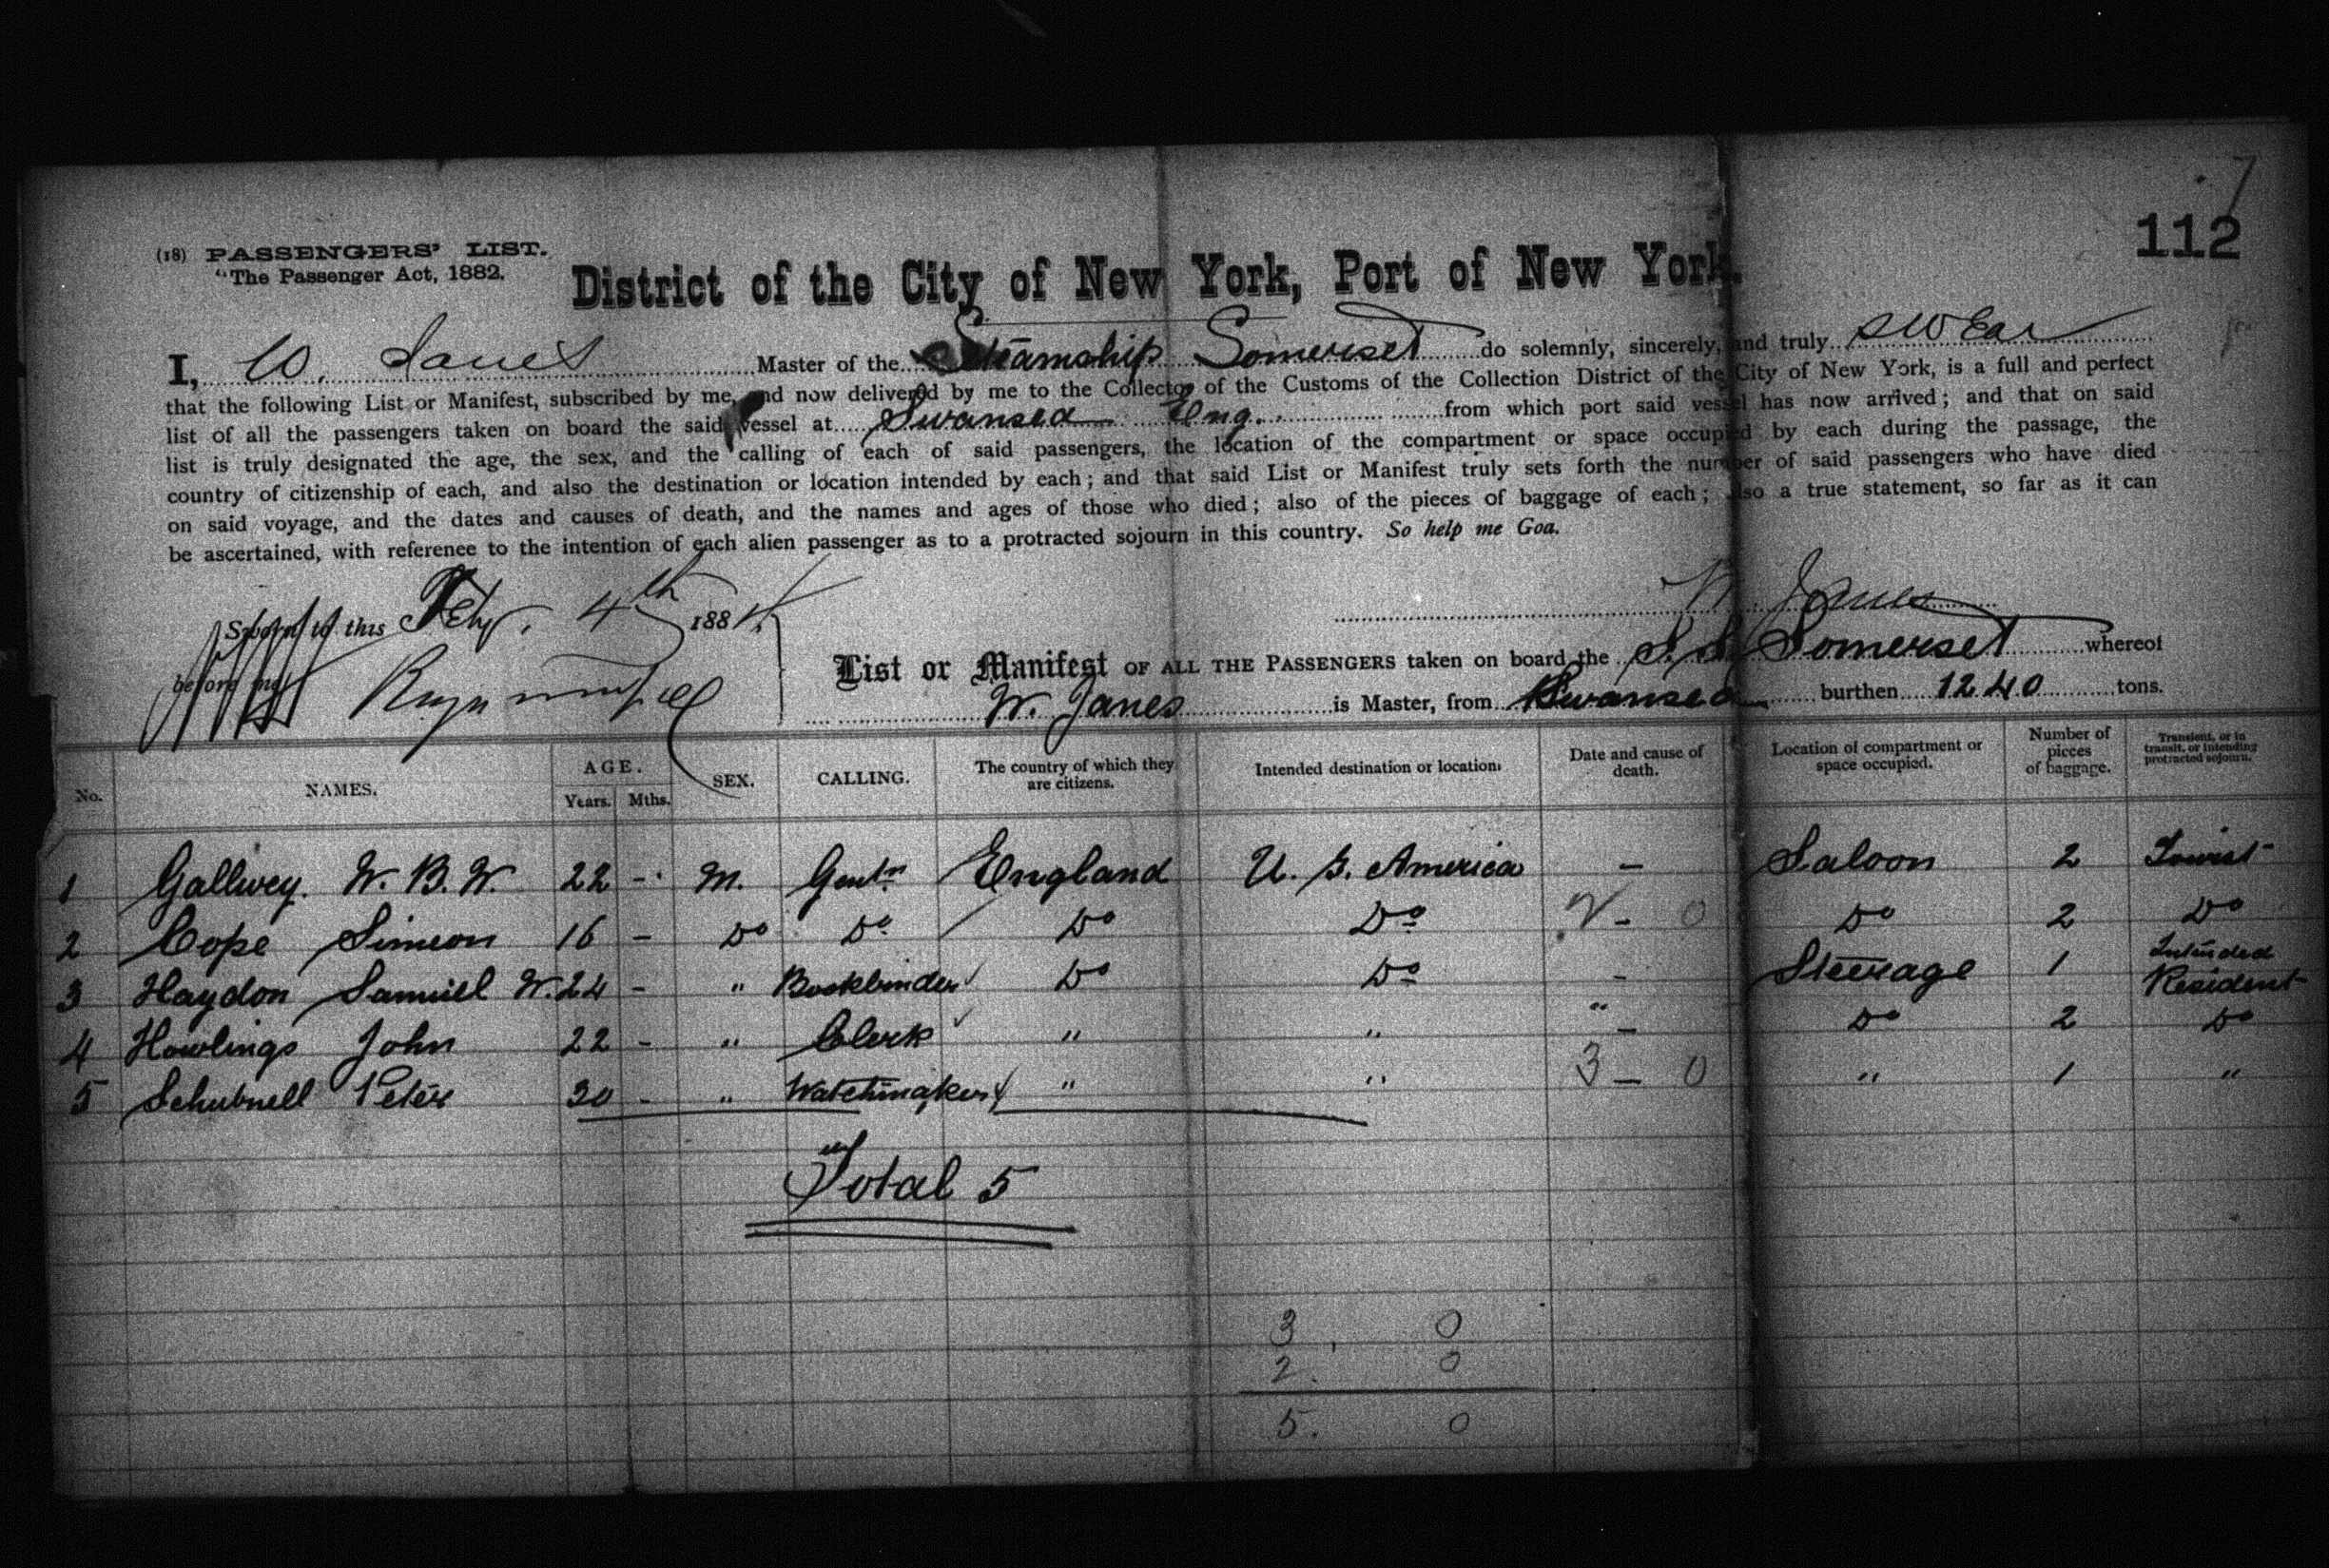 7
112
(18) PASSENGERS' LIST.
"The Passenger Act, 1882.
District of the City of New York, Port of New York.
I, W. Janes Master of the Steamship Somerset do solemnly, sincerely, and truly swear
that the following List or Manifest, subscribed by me, and now delivered by me to the Collector of the Customs of the Collection District of the City of New York, is a full and perfect
list of all the passengers taken on board the said vessel at Swansea Eng. from which port said vessel has now arrived; and that on said
list is truly designated the age, the sex, and the calling of each of said passengers, the location of the compartment or space occupied by each during the passage, the
country of citizenship of each, and also the destination or location intended by each; and that said List or Manifest truly sets forth the number of said passengers who have died
on said voyage, and the dates and causes of death, and the names and ages of those who died; also of the pieces of baggage of each; also a true statement, so far as it can
be ascertained, with reference to the intention of each alien passenger as to a protracted sojourn in this country. So help me God.
Sworn to this Feby. 4th 1884
W. Janes
before me
List or Manifest OF ALL THE PASSENGERS taken on board the S.S. Somerset whereof
W. Janes is Master, from Swansea burthen 1240 tons.
No. NAMES. AGE. Years. Mths. SEX. CALLING. The country of which they are citizens. Intended destination or location. Date and cause of death. Location of compartment or space occupied. Number of pieces of baggage. Transient, or in transit, or intending protracted sojourn.
1 Gallwey. W. B. W. 22 - M. Gentn England U. S. America - Saloon 2 Tourist
2 Cope Simeon 16 - Do Do Do Do 2 - 0 Do 2 Do
3 Haydon Samuel W. 24 - " Bookbinder Do Do - Steerage 1 Intended Resident
4 Howlings John 22 - " Clerk " " " - Do 2 Do
5 Schubnell Peter 30 - " Watchmaker " " 3 - 0 " 1 "
Total 5
3. 0
2. 0
5. 0